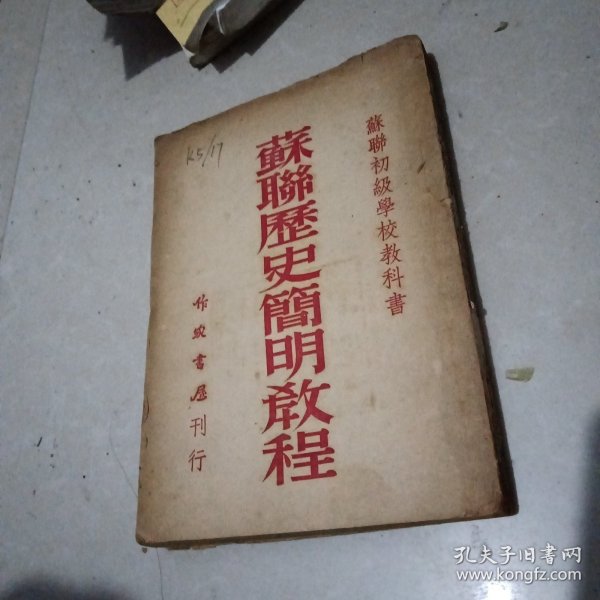 蘇聯初級學校教科書
蘇聯歷史簡明教程
作家書屋刊行
K5/17
孔夫子旧書网
www.kongfz.com